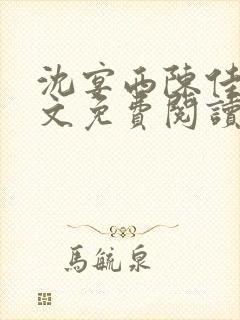 沈宴西陳佳
文免費閱讀
馬毓泉